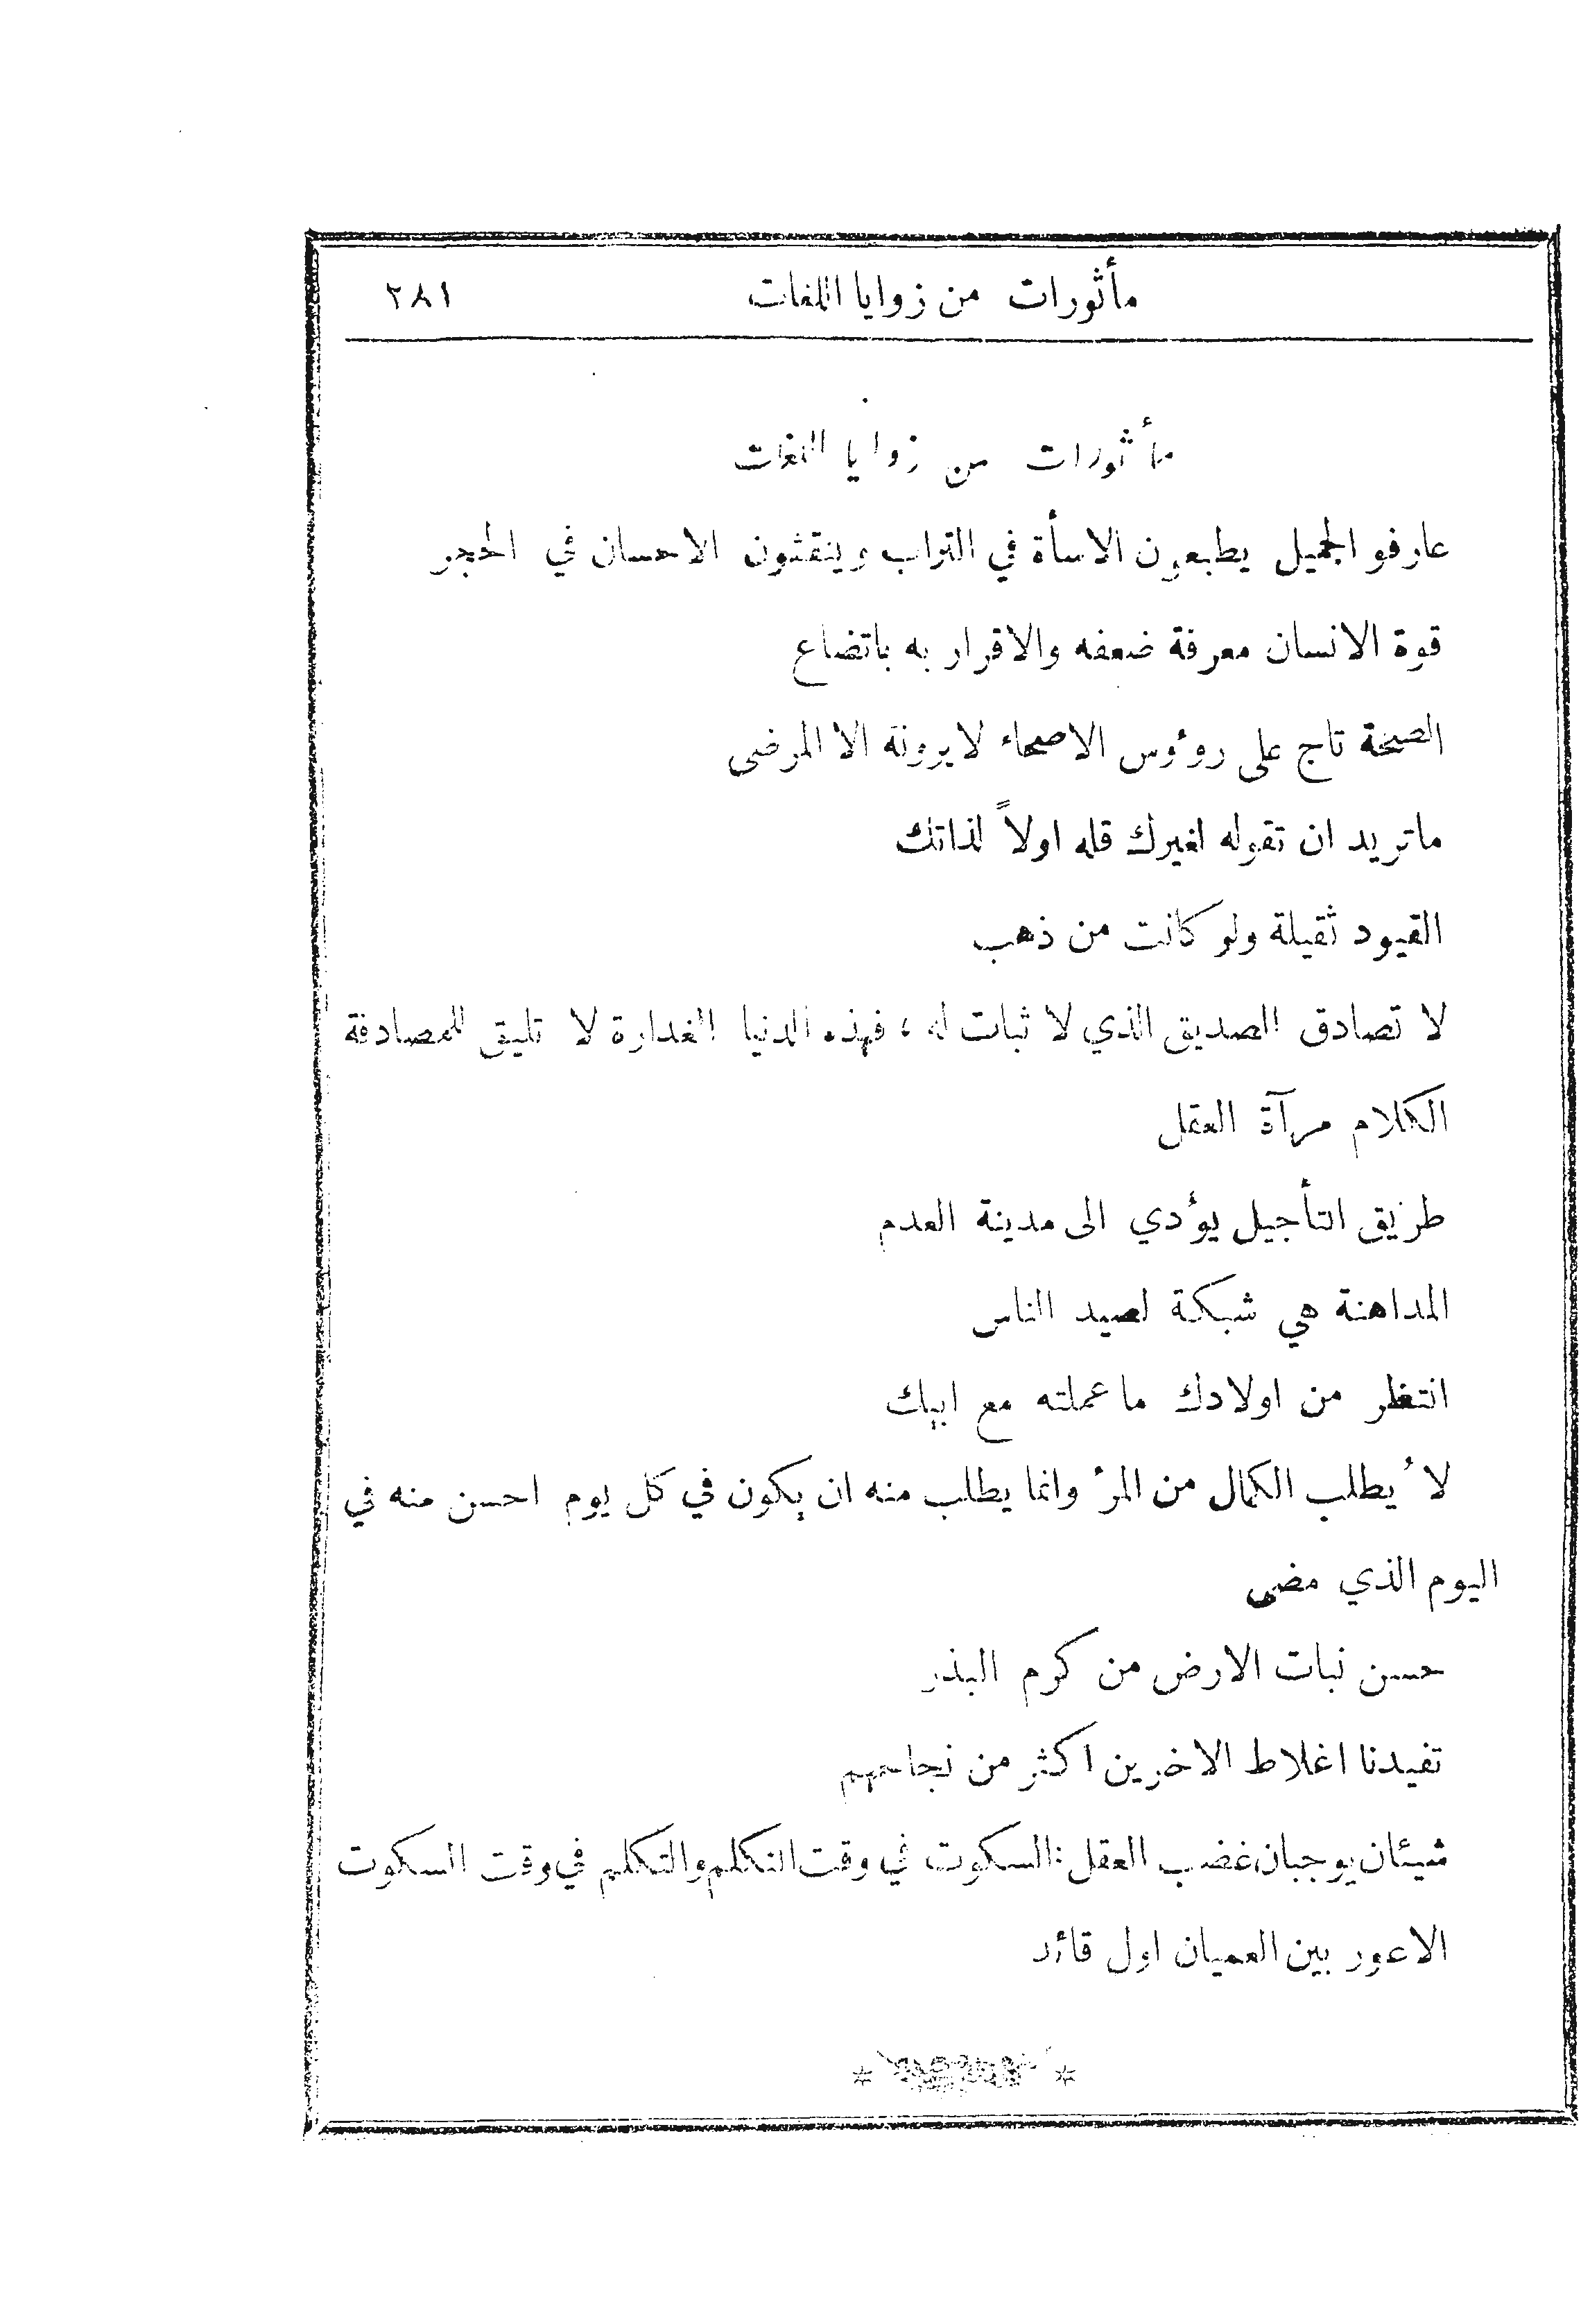 مأثورات من زوايا اللغات ٢٨١
مأثورات من زوايا اللغات
عارفو الجميل يطبعون الاسأة في التراب وينقشون الاحسان في الحجر
قوة الانسان معرفة ضعفه والاقرار به باتضاع
الصحة تاج على روؤس الاصحاء لا يرونه الا المرضى
ما تريد ان تقوله لغيرك قله اولاً لذاتك
القيود ثقيلة ولو كانت من ذهب
لا تصادق الصديق الذي لا ثبات له ، فهذه الدنيا الغدارة لا تليق للمصادقة
الكلام مرآة العقل
طريق التأجيل يوؤدي الى مدينة العدم
المداهنة هي شبكة لصيد الناس
انتظر من اولادك ما عملته مع ابيك
لا يُطلب الكمال من المرء وانما يطلب منه ان يكون في كل يوم احسن منه في
اليوم الذي مضى
حسن نبات الارض من كرم البذر
تفيدنا اغلاط الاخرين اكثر من نجاحهم
شيئان يوجبان غضب العقل : السكوت في وقت التكلم والتكلم في وقت السكوت
الاعور بين العميان اول قائد